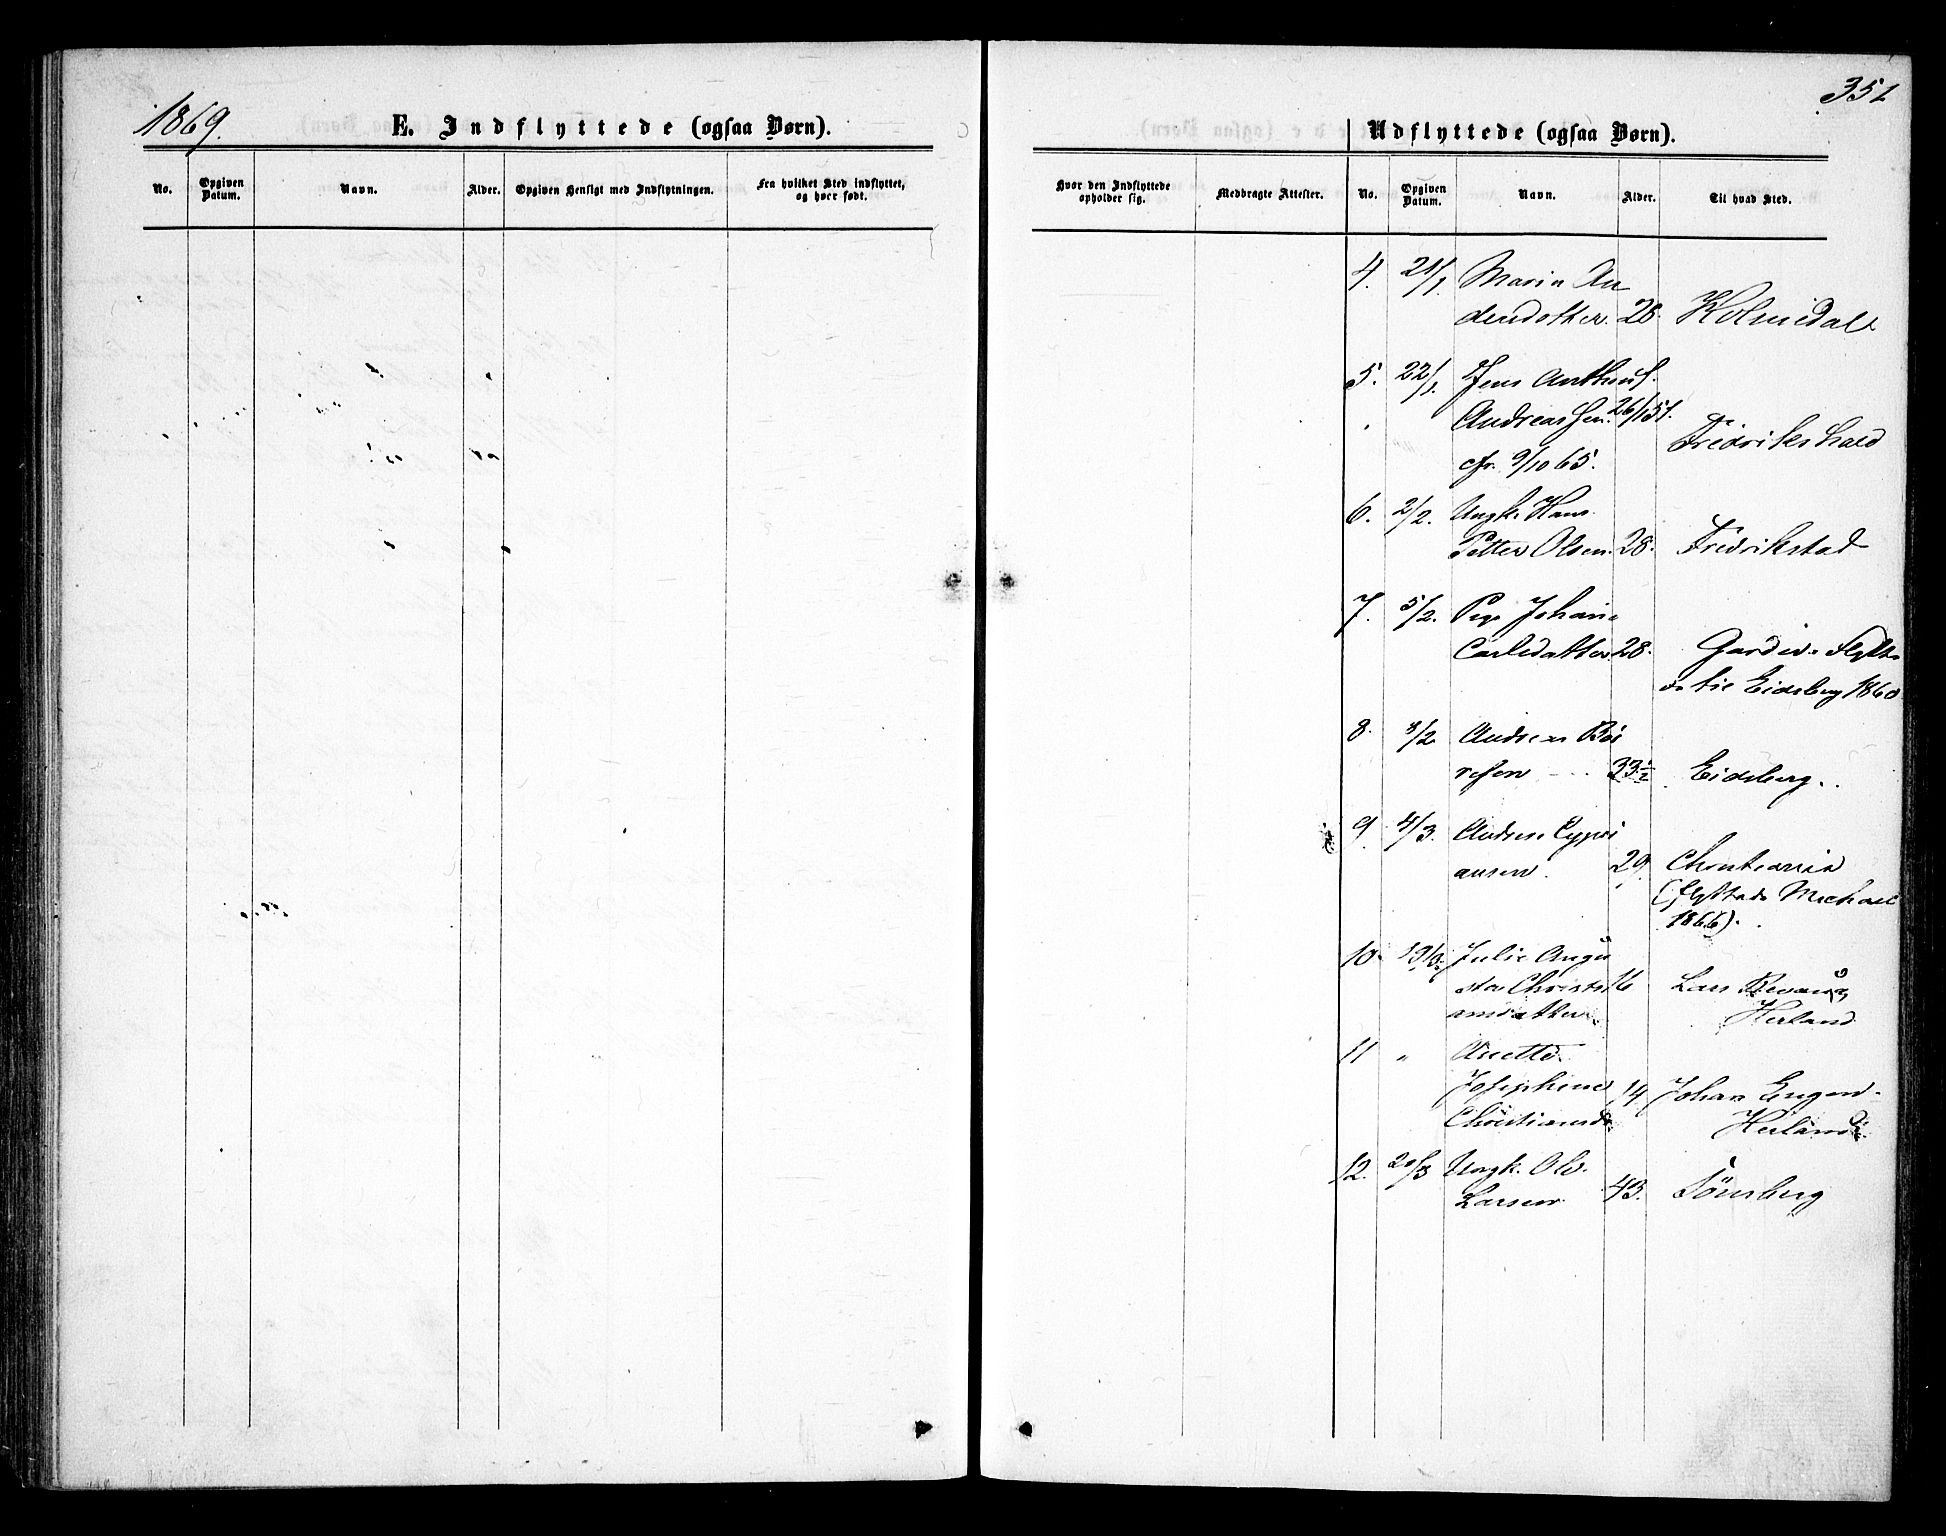 1869.
E. Indflyttede (ogsaa Børn).
No.
Opgiven Datum.
Navn.
Alder.
Opgiven Hensigt med Indflytningen.
Fra hvilket Sted indflyttet, og hvor født.
351
Udflyttede (ogsaa Børn).
Hvor den Indflyttede opholder sig.
Medbragte Attester.
No.
Opgiven Datum.
Navn.
Alder.
Til hvad Sted.
4. 21/1. Maria An
dersdotter. 28. Holmedal
5. 22/1. Jens Anthus.
Andreassen. 26/1 51. Fredrikshald
cfr. 9/10 65.
6. 2/2. Ungk. Hans
Petter Olsen. 28. Fredrikstad
7. 5/2. Pige Johane
Carlsdatter 28. Garder. Flytt
til Eidsberg 1860
8. 8/2 Andreas Bør
resen 33½ Eidsberg.
9. 4/3. Andreas Cypri
ansen. 29. Christiania
(flyttede Michael
1866).
10. 19/3 Julie Augu
sta Christi 16 Lars
ansdatter. Herland
11 " Anette
Josephine 14 Johan Engen
Christiansd. Herland
12. 20/3 Ungk. Ole
Larsen 43. Tönsberg